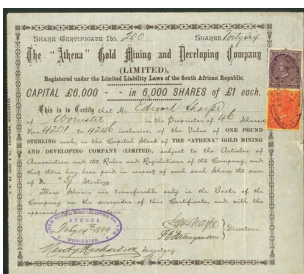 SHARE CERTIFICATE No. 200 SHARES Forty six
The "Athena" Gold Mining and Developing Company
(LIMITED),
Registered under the Limited Liability Laws of the South African Republic.
CAPITAL £6,000 - - in 6,000 SHARES of £1 each.
This is to Certify that Mr. Edward
of Worcester is the Proprietor of 46 Shares
Nos 4201 to 4246 inclusive, of the Value of ONE POUND
STERLING each, in the Capital Stock of THE "ATHENA" GOLD MINING
AND DEVELOPING COMPANY (LIMITED), subject to the Articles of
Association and the Rules and Regulations of the Company, and
that there has been paid in respect of each such Share the sum
of One £ Sterling
These Shares are transferable only in the Books of the
Company on surrender of this Certificate, and with the
ATHENA
July
WORCESTER
Secretary